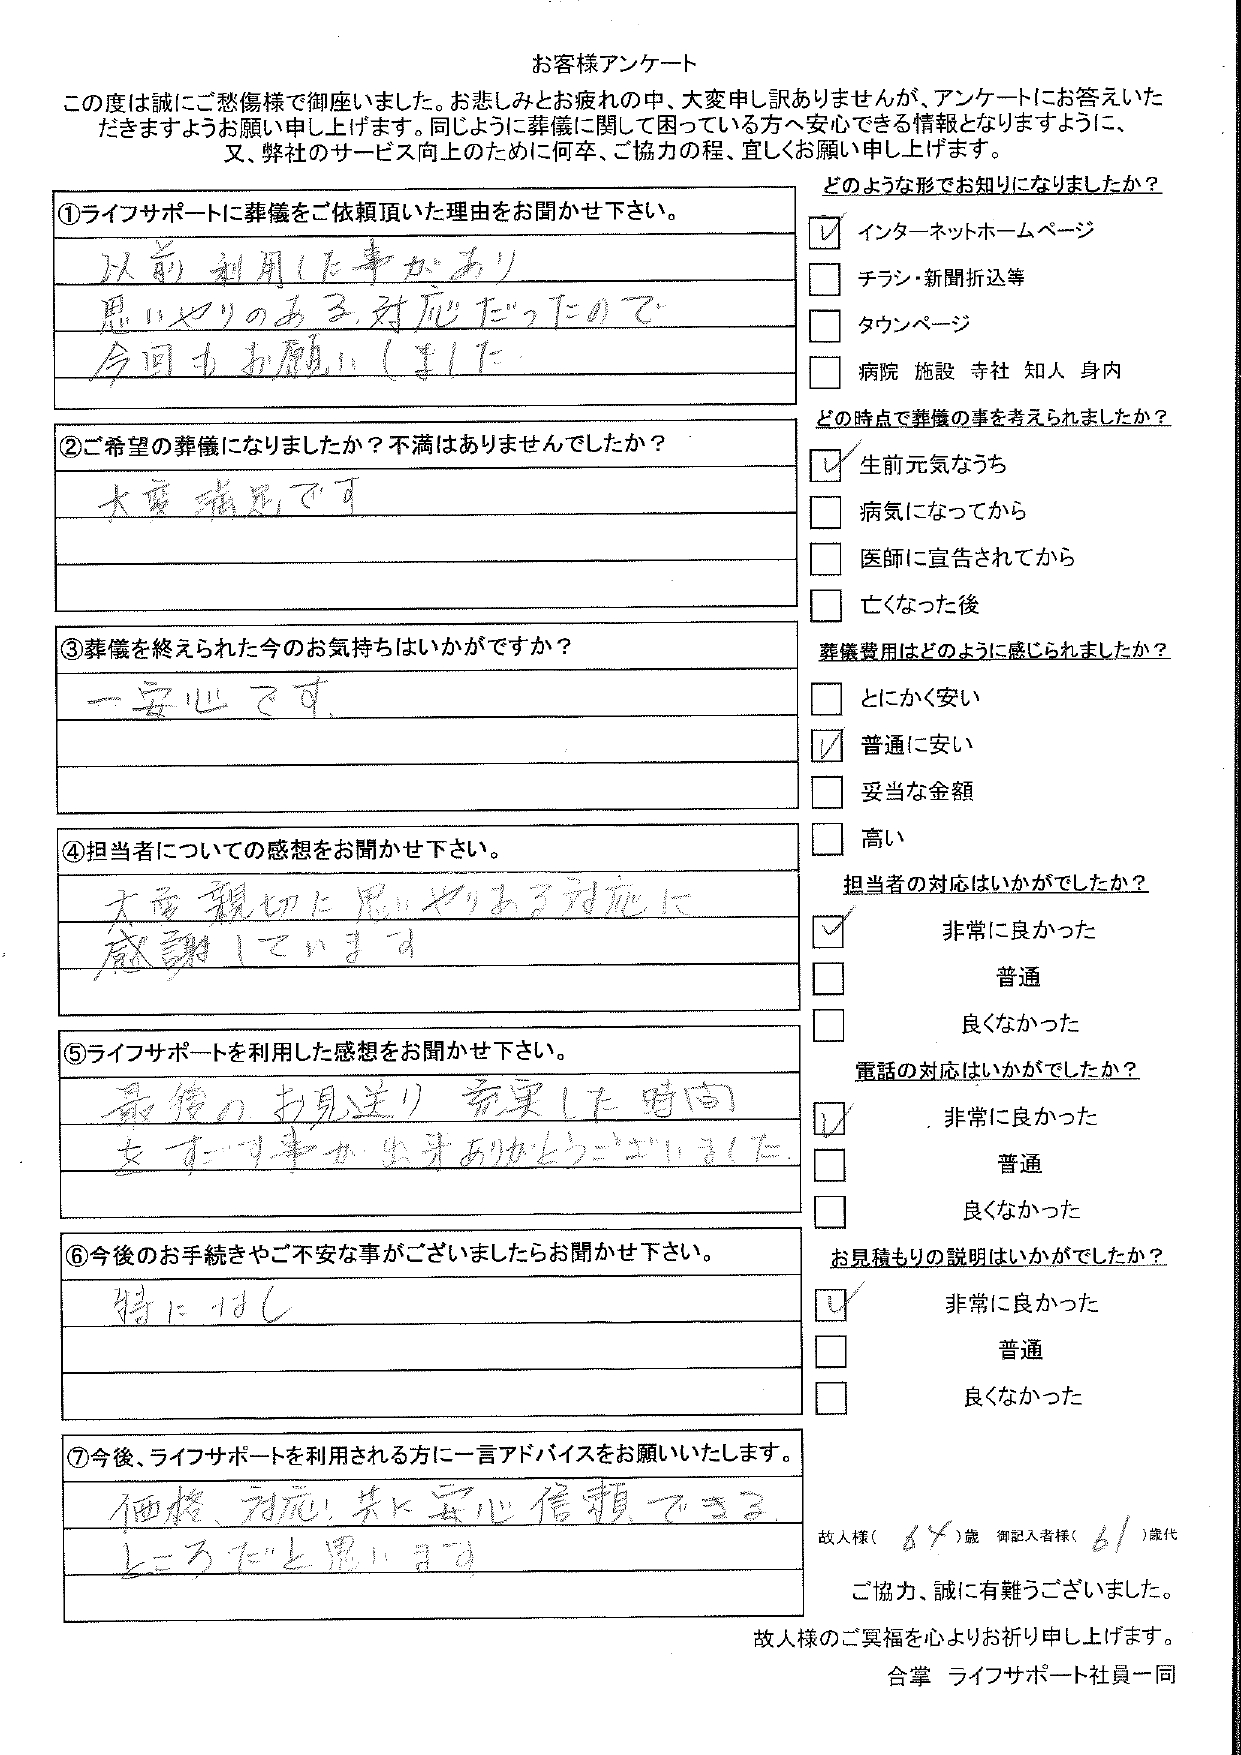 お客様アンケート
この度は誠にご愁傷様で御座いました。お悲しみとお疲れの中、大変申し訳ありませんが、アンケートにお答えいた
だきますようお願い申し上げます。同じように葬儀に関して困っている方へ安心できる情報となりますように、
又、弊社のサービス向上のために何卒、ご協力の程、宜しくお願い申し上げます。
①ライフサポートに葬儀をご依頼頂いた理由をお聞かせ下さい。
以前利用した事があり
思いやりのある対応だったので
今回もお願いしました
②ご希望の葬儀になりましたか？不満はありませんでしたか？
大変満足です
③葬儀を終えられた今のお気持ちはいかがですか？
一安心です.
④担当者についての感想をお聞かせ下さい。
大変親切に思いやりある対応に
感謝しています
⑤ライフサポートを利用した感想をお聞かせ下さい。
最後のお見送り充実した時間
をすごす事が出来ありがとうございました.
⑥今後のお手続きやご不安な事がございましたらお聞かせ下さい。
特になし
⑦今後、ライフサポートを利用される方に一言アドバイスをお願いいたします。
価格、対応、共に安心信頼できる
ところだと思います
どのような形でお知りになりましたか？
インターネットホームページ
チラシ・新聞折込等
タウンページ
病院 施設 寺社 知人 身内
どの時点で葬儀の事を考えられましたか？
生前元気なうち
病気になってから
医師に宣告されてから
亡くなった後
葬儀費用はどのように感じられましたか？
とにかく安い
普通に安い
妥当な金額
高い
担当者の対応はいかがでしたか？
非常に良かった
普通
良くなかった
電話の対応はいかがでしたか？
非常に良かった
普通
良くなかった
お見積もりの説明はいかがでしたか？
非常に良かった
普通
良くなかった
故人様( 64 )歳 御記入者様( 61 )歳代
ご協力、誠に有難うございました。
故人様のご冥福を心よりお祈り申し上げます。
合掌 ライフサポート社員一同